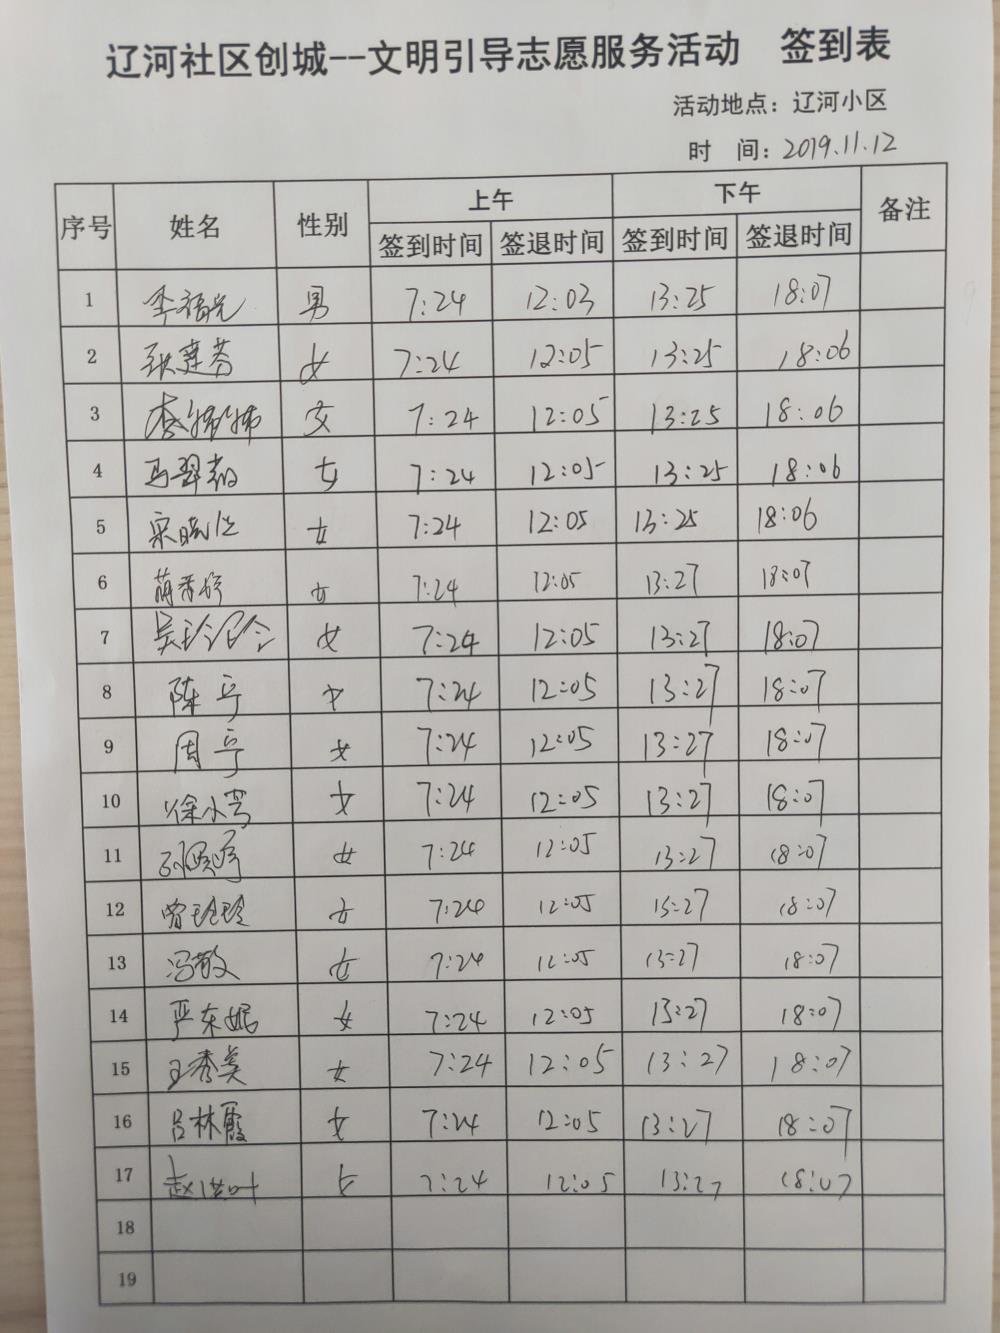 辽河社区创城--文明引导志愿服务活动 签到表
活动地点：辽河小区
时 间：2019.11.12
序号 姓名 性别 上午 下午 备注
签到时间 签退时间 签到时间 签退时间
1 李福光 男 7:24 12:03 13:25 18:07
2 张建芬 女 7:24 12:05 13:25 18:06
3 李娜娜 女 7:24 12:05 13:25 18:06
4 马翠 女 7:24 12:05 13:25 18:06
5 宋晓 女 7:24 12:05 13:25 18:06
6 女 7:24 12:05 13:27 18:07
7 吴玲玲 女 7:24 12:05 13:27 18:07
8 陈宁 女 7:24 12:05 13:27 18:07
9 周宁 女 7:24 12:05 13:27 18:07
10 徐小雪 女 7:24 12:05 13:27 18:07
11 孙 女 7:24 12:05 13:27 18:07
12 曾玲玲 女 7:24 12:05 13:27 18:07
13 冯敬 女 7:24 12:05 13:27 18:07
14 严东妮 女 7:24 12:05 13:27 18:07
15 王秀美 女 7:24 12:05 13:27 18:07
16 吕林霞 女 7:24 12:05 13:27 18:07
17 赵洪叶 女 7:24 12:05 13:27 18:07
18
19